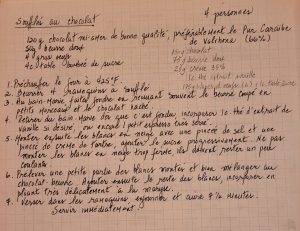 Soufflés au chocolat
4 personnes
120g chocolat mi-amer de bonne qualité, préférablement le Pur Caraïbe
de Valrhona (66%)
50g beurre doux
4 gros œufs
4 c. table comble de sucre
chocolat
beurre doux
crème 35%
1. Préchauffer le four à 425°F.
2. Beurrer 4 ramequins à soufflé
3. Au bain-marie, faites fondre en remuant souvent le beurre coupé en
petits morceaux et le chocolat haché.
4. Retirer du bain-marie dès que c'est fondu; incorporer 1 c. thé d'extrait de
vanille si désiré, pas encore ! petit espresso très serré.
5. Monter ensuite les blancs en neige avec une pincée de sel et une
pincée de crème de tartre, ajouter le sucre progressivement. Ne pas
monter les blancs en neige trop ferme, ils doivent rester un peu
coulants.
6. Prélever une petite partie des blancs montés et bien mélanger au
chocolat-beurre. Ajouter ensuite le reste des blancs, incorporer en
pliant très délicatement à la maryse.
7. Verser dans les ramequins, enfourner et cuire 9 ½ minutes.
Servir immédiatement.